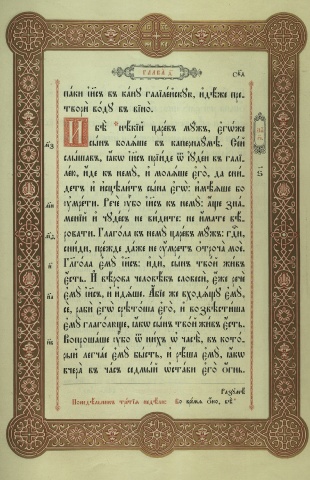 ГЛАВА Д҃.
паки і҆и҃съ въ канꙋ галїлейскꙋю, и҆дѣ́же пре-
твори̂ во́дꙋ въ вїно̀.
И бѣ̀ нѣ́кїй царе́въ мꙋ́жъ, є҆гѡ́же
сы́нъ болѧ́ше въ капернаꙋ́мѣ. Се́й
слы́шавъ, ꙗ҆́кѡ і҆и҃съ прїи́де ѿ і҆ꙋде́и въ галї-
ле́ю, и҆́де къ немꙋ̀, и҆ молѧ́ше є҆го̀, да сни́-
детъ и҆ и҆сцѣли́тъ сы́на є҆гѡ̀: и҆мѣ́ѧше бо
ᲂу҆мре́ти. Речѐ ᲂу҆̀бо і҆и҃съ къ немꙋ̀: а҆́ще зна́-
менїй и҆ чꙋде́съ не ви́дите, не и҆́мате вѣ́-
ровати. Глаго́ла къ немꙋ̀ царе́въ мꙋ́жъ: гд҇и,
сни́ди, пре́жде да́же не ᲂу҆́мретъ ѻ҆троча̀ моѐ.
Глаго́ла є҆мꙋ̀ і҆и҃съ: и҆дѝ, сы́нъ тво́й жи́въ
є҆́сть. И҆ вѣ́рова человѣ́къ словесѝ, є҆́же речѐ
є҆мꙋ̀ і҆и҃съ, и҆ и҆дѧ́ше. А҆́бїе же входѧ́щꙋ є҆мꙋ̀,
сѐ, рабѝ є҆гѡ̀ срѣто́ша є҆го̀, и҆ возвѣсти́ша
глаго́люще, ꙗ҆́кѡ сы́нъ тво́й жи́въ є҆́сть.
Вопроша́ше ᲂу҆̀бо ѿ ни́хъ ѡ҆ часѣ̀, въ кото́-
рый ле́гчае є҆мꙋ̀ бы́сть, и҆ рѣ́ша є҆мꙋ̀, ꙗ҆́кѡ
вчера̀ въ ча́съ седмы́й ѡ҆ста́ви є҆го̀ ѻ҆́гнь.
Разꙋмѣ́
Понедѣ́льникъ тре́тїѧ недѣ́ли: Во вре́мѧ ѻ҆́но, бѣ̀